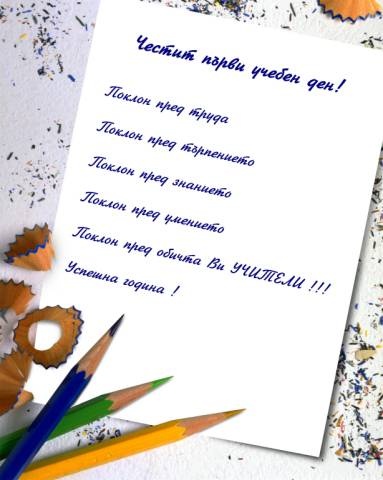 Честит първи учебен ден!
Поклон пред труда
Поклон пред търпението
Поклон пред знанието
Поклон пред умението
Поклон пред обичта Ви УЧИТЕЛИ !!!
Успешна година !